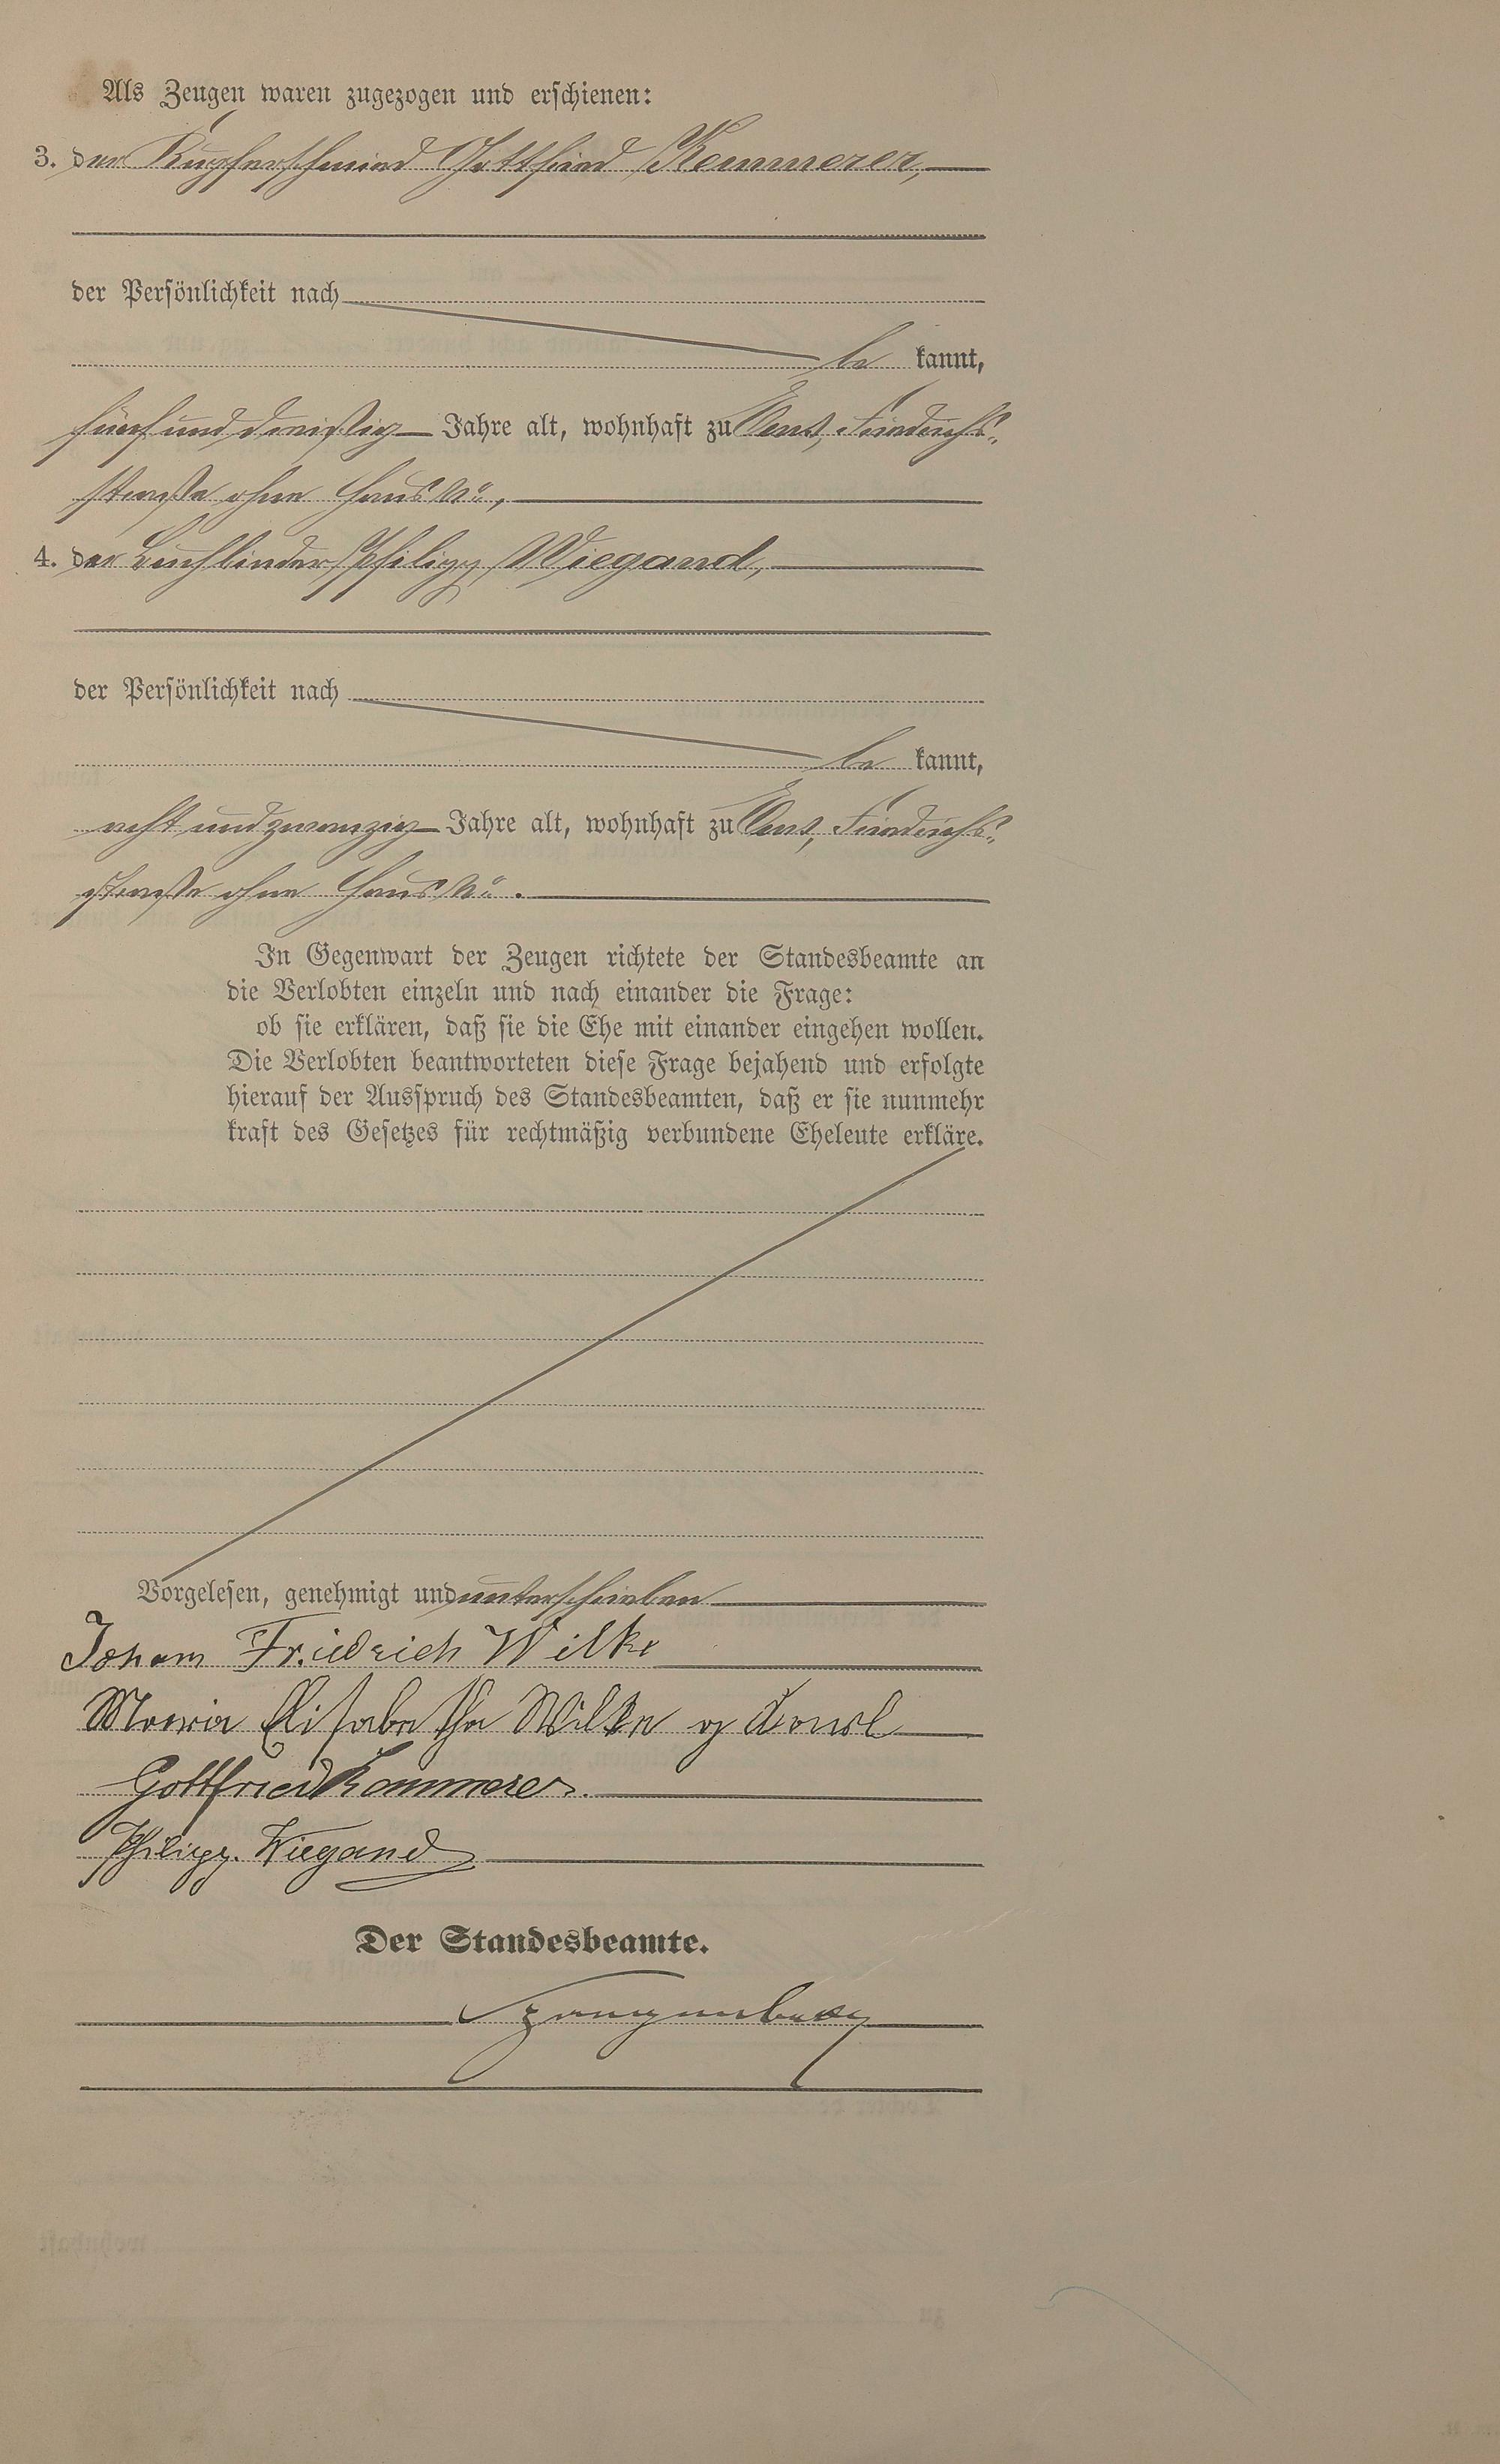 Als Zeugen waren zugezogen und erschienen:
3. der Kupferschmied Gottfried Kemmerer,
der Persönlichkeit nach
be kannt,
fünf und dreißig Jahre alt, wohnhaft zu Ems, Friedrichs-
straße ohne Haus No,
4. der Buchbinder Philipp Wiegand,
der Persönlichkeit nach
be kannt,
acht und zwanzig Jahre alt, wohnhaft zu Ems, Friedrichs-
straße ohne Haus No.
In Gegenwart der Zeugen richtete der Standesbeamte an
die Verlobten einzeln und nach einander die Frage:
ob sie erklären, daß sie die Ehe mit einander eingehen wollen.
Die Verlobten beantworteten diese Frage bejahend und erfolgte
hierauf der Ausspruch des Standesbeamten, daß er sie nunmehr
kraft des Gesetzes für rechtmäßig verbundene Eheleute erkläre.
Vorgelesen, genehmigt und unterschrieben
Johann Friedrich Wilke
Maria Elisabetha Wilke
Gottfried Kemmerer
Philipp Wiegand
Der Standesbeamte.
Spangenberg